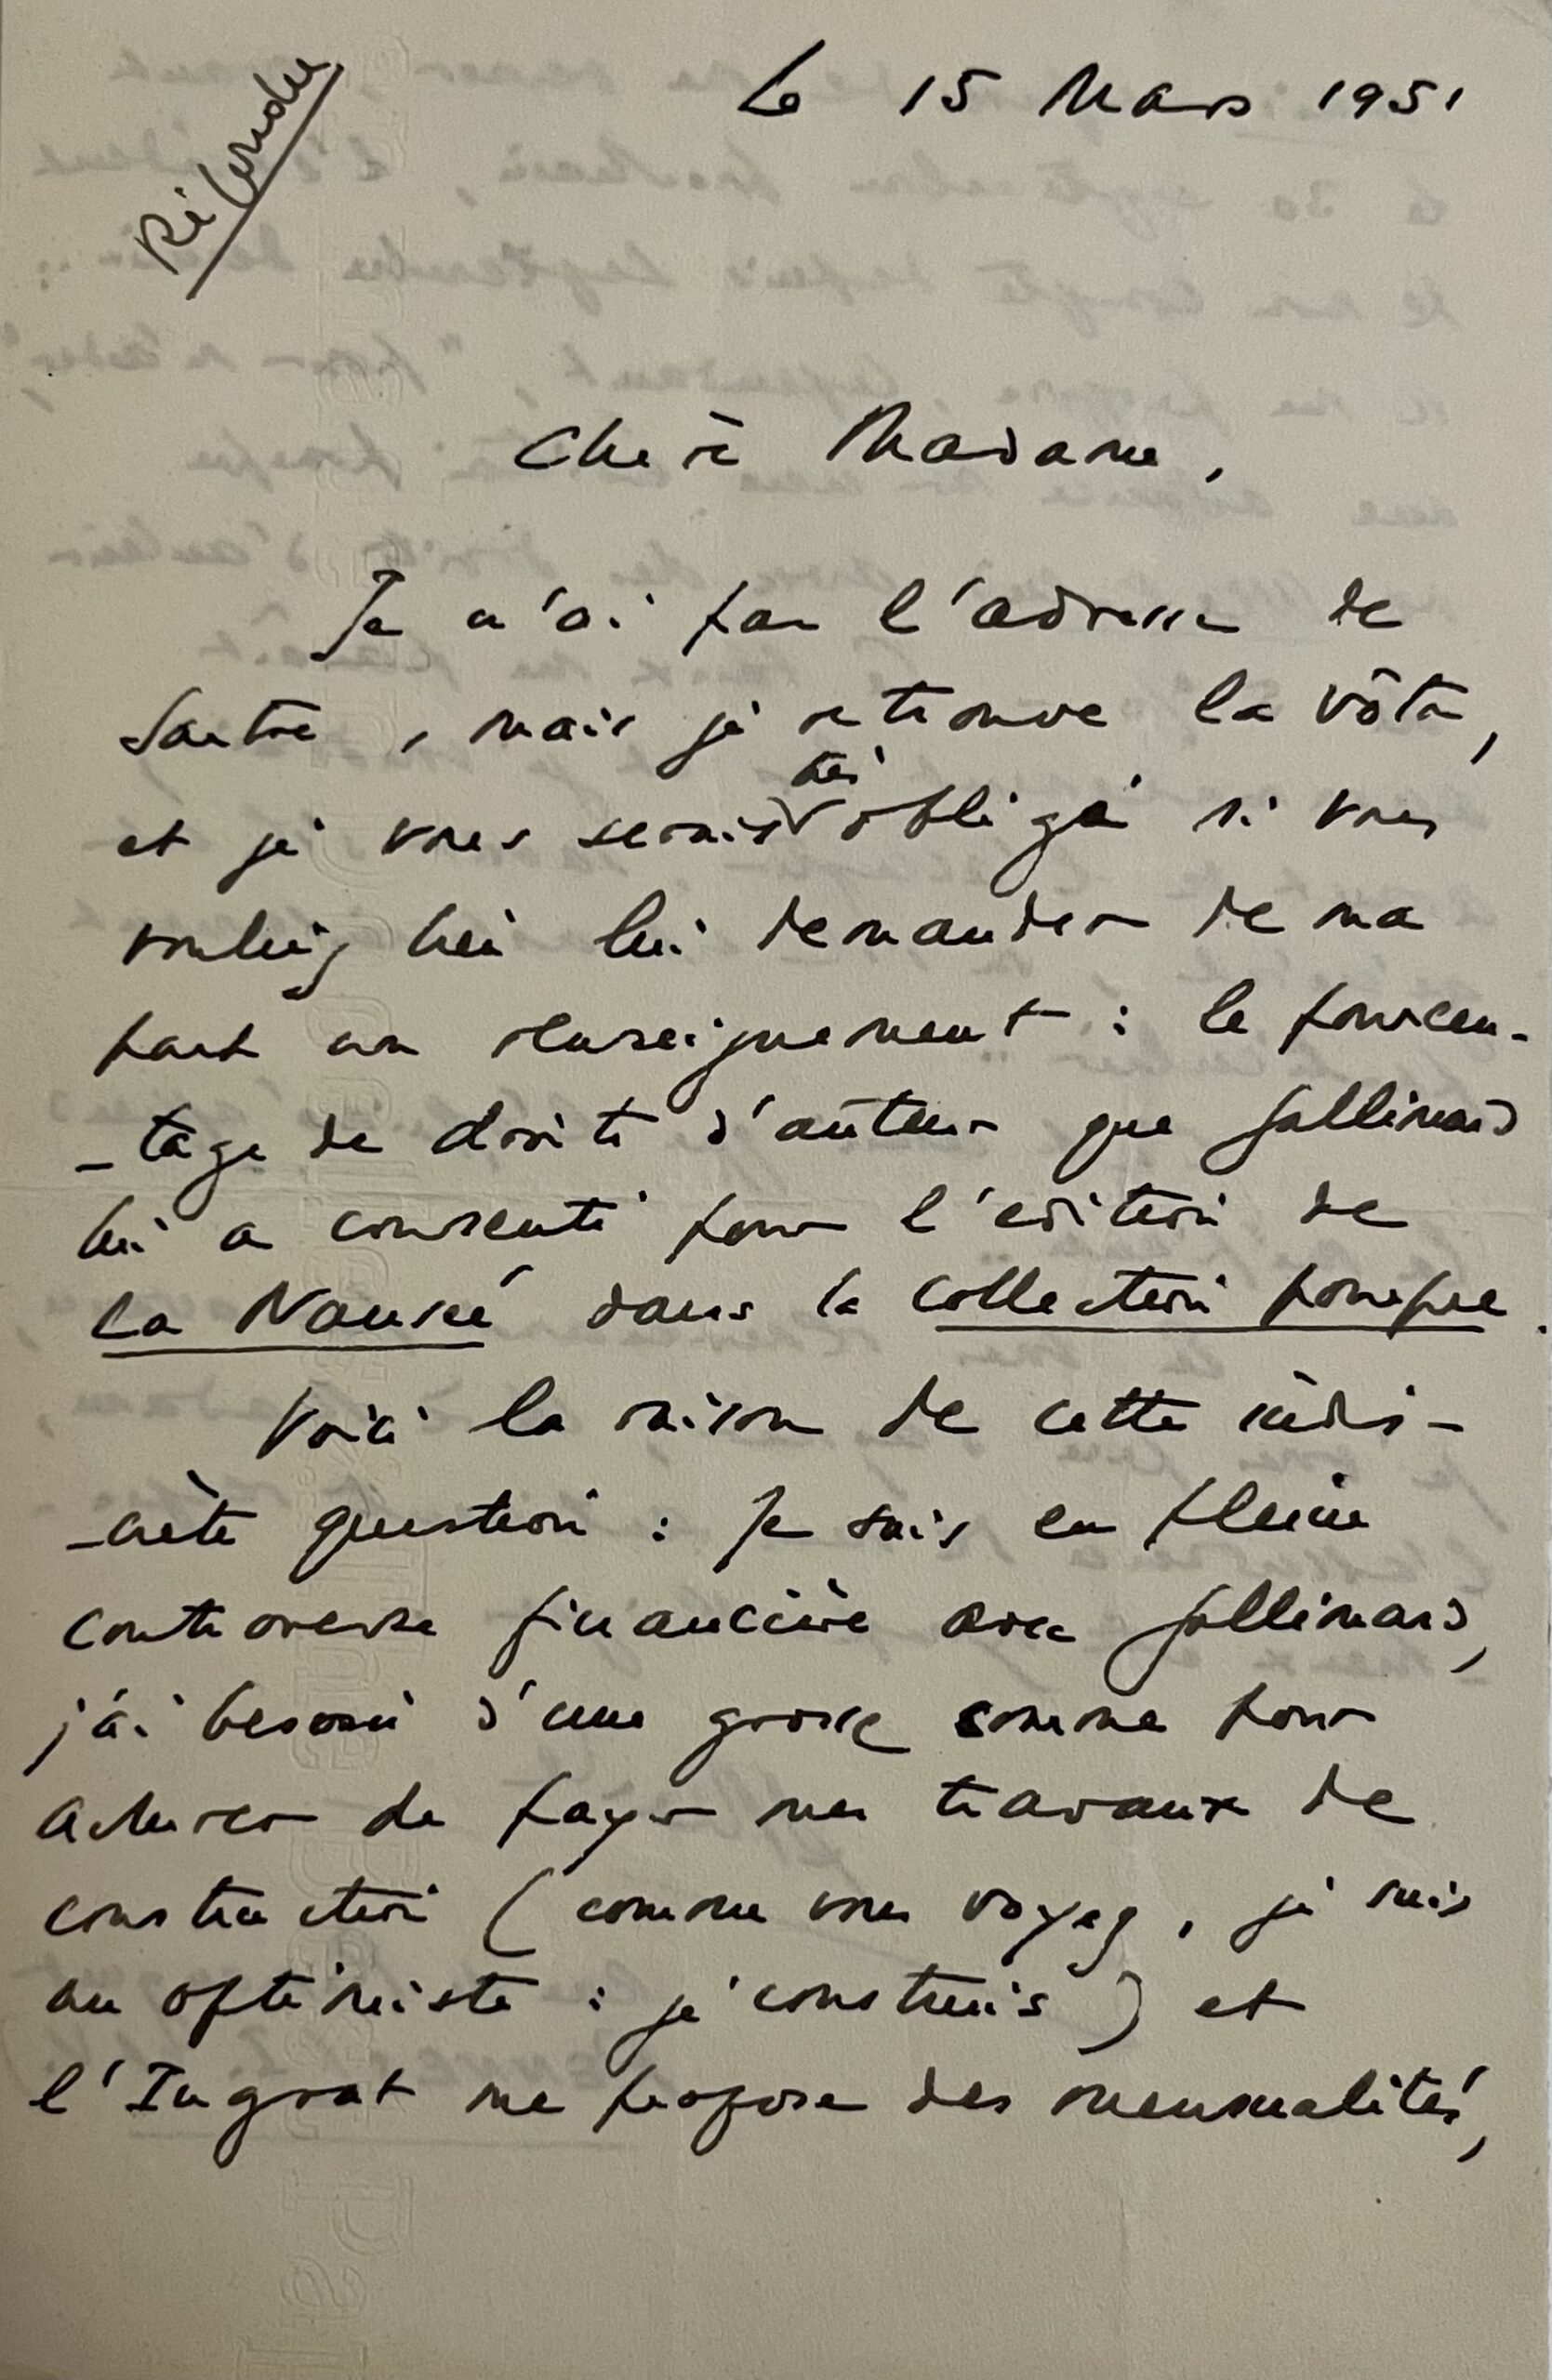 Le 15 Mars 1951
Répondu
Chère Madame,
Je n'ai pas l'adresse de
Sartre, mais je retrouve la vôtre,
et je vous serais très obligé si vous
vouliez bien lui demander de ma
part un renseignement : le pourcen-
-tage de droits d'auteur que Gallimard
lui a consenti pour l'édition de
La Nausée dans la collection pourpre.
Voici la raison de cette indis-
-crète question : Je suis en pleine
controverse financière avec Gallimard,
j'ai besoin d'une grosse somme pour
achever de payer mes travaux de
construction (comme vous voyez, je suis
un optimiste : je construis) et
l'Ingrat me propose des mensualités,